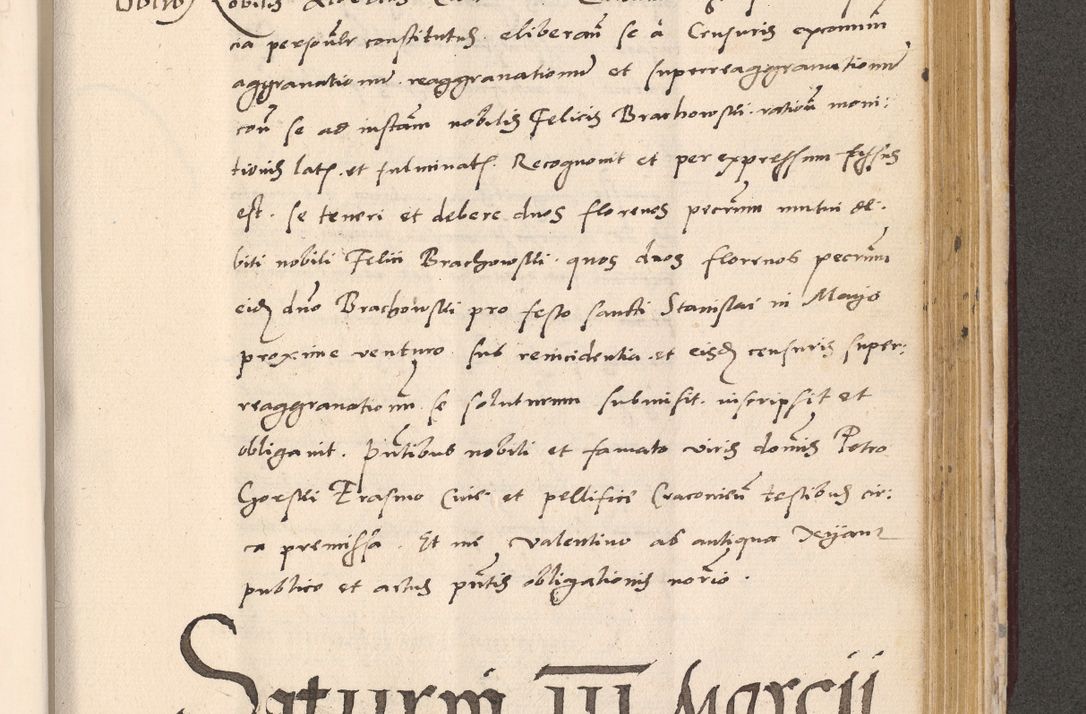 cia personlr constitutus. eliberan se a Censuris excomun
aggrauationum. reaggrauationum et superreaggrauationum
con se ad instam nobilis Felicis Brachowski. ration moni:
tionis lat. et fulminat. Recognouit et per expressum fassus
est. se teneri et debere duos florenos pecun mutui de:
biti nobili Felici Brachowski. quos duos florenos pecun
eid dno Brachowski pro festo sancti Stanislai in Mayo
proxime venturo sub reincidentia et eisd censuris super:
reaggrauationum se soluturum submisit. inscripsit et
obligauit. Pntibus nobili et famato viris domis Petro
Gorski Erasmo Ciue et pellifice Cracouien testibus cir:
ca premissa. Et me Valentino ab antiqua
publico et actus pntis obligationis norio.
Saturni III Marcii